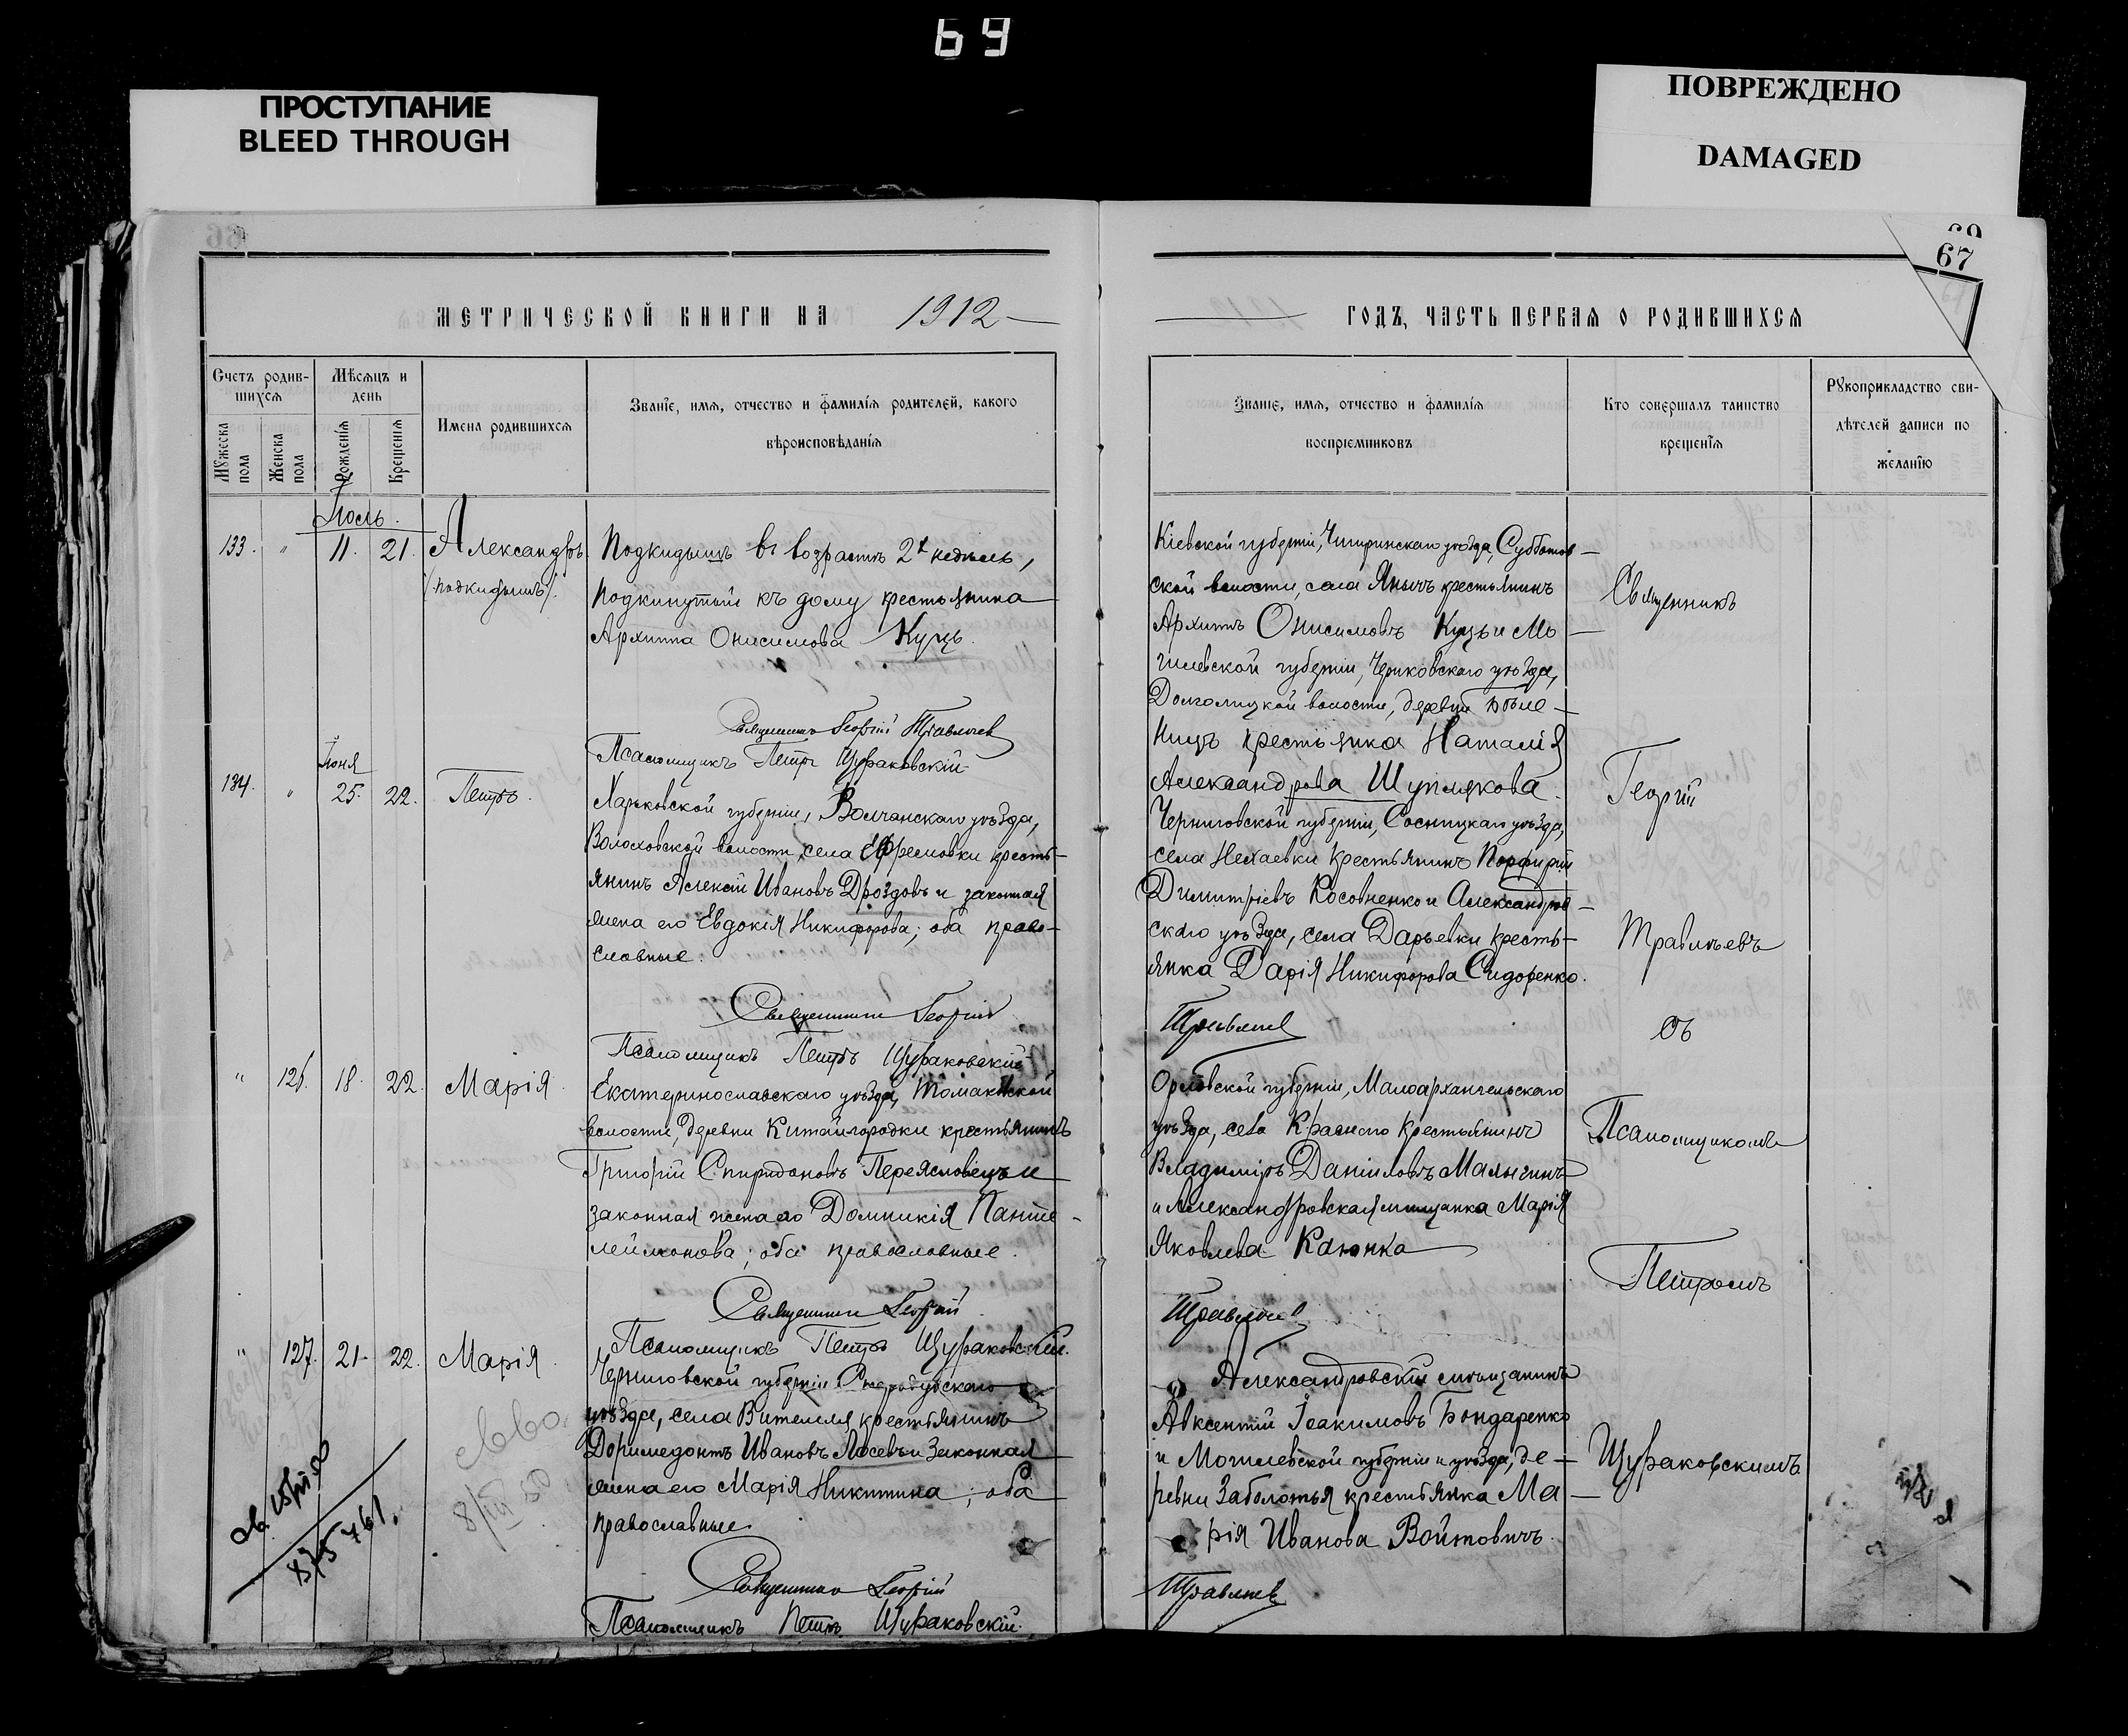 69
ПРОСТУПАНИЕ
BLEED THROUGH
ПОВРЕЖДЕНО
DAMAGED
67
МЕТРИЧЕСКОЙ КНИГИ НА 1912
Счетъ родив-
шихся
Мѣсяцъ и
день
Имена родившихся
Званіе, имя, отчество и фамилія родителей, какого
вѣроисповѣданія
Мужеска
пола
Женска
пола
Рожденія
Крещенія
Іюль.
133. " 11. 21. Александръ
/подкидышъ/.
Подкидышъ въ возрастѣ 2х недѣль,
подкинутый къ дому крестьянина
Архиппа Онисимова Куць.
Священникъ Георгій Травлѣевъ
Псаломщикъ Петръ Щураковскій
Іюня
134. " 25. 22. Петръ.
Харьковской губерніи, Волчанскаго уѣзда,
Волоховской волости, села Ефремовки кресть-
янинъ Алексій Ивановъ Дроздовъ и законная
жена его Евдокія Никифорова; оба право-
славные.
Священникъ Георгій
Псаломщикъ Петръ Щураковскій
" 126. 18. 22. Марія.
Екатеринославскаго уѣзда, Томаковской
волости, деревни Китайгородки крестьянинъ
Григорій Спиридоновъ Переясловецъ и
законная жена его Домникія Панте-
леймонова; оба православные.
Священникъ Георгій
Псаломщикъ Петръ Щураковскій.
" 127. 21. 22. Марія.
Черниговской губерніи Стародубскаго
уѣзда, села Витемля крестьянинъ
Доримедонтъ Ивановъ Лосевъ и законная
жена его Марія Никитина; оба
православные.
Священникъ Георгій
Псаломщикъ Петръ Щураковскій.
8/III 50
ГОДЪ, ЧАСТЬ ПЕРВАЯ О РОДИВШИХСЯ
Званіе, имя, отчество и фамилія
воспріемниковъ
Кто совершалъ таинство
крещенія
Рукоприкладство сви-
дѣтелей записи по
желанію
Кіевской губерніи, Чигиринскаго уѣзда, Субботов-
ской волости, села Янычъ крестьянинъ
Архиппъ Онисимовъ Куць и Мо-
гилевской губерніи, Чериковскаго уѣзда,
волости, деревни
крестьянка Наталія
Александрова Шуплякова.
Черниговской губерніи, Сосницкаго уѣзда,
села Нехаевки крестьянинъ Порфирій
Димитріевъ Косовненко и Александров-
скаго уѣзда, села Дарьевки кресть-
янка Дарія Никифорова Сидоренко.
Травлѣевъ
Орловской губерніи, Малоархангельскаго
уѣзда, села Краснаго крестьянинъ
Владиміръ Даніиловъ Малыгинъ
и Александровская мѣщанка Марія
Яковлева Каюнка
Травлѣевъ
Александровскій мѣщанинъ
Авксентій Іоакимовъ Бондаренко
и Могилевской губерніи и уѣзда, де-
ревни Заболотья крестьянка Ма-
рія Иванова Войтовичъ.
Травлѣевъ
Священникъ
Георгій
Травлѣевъ
съ
Псаломщикомъ
Петромъ
Щураковскимъ